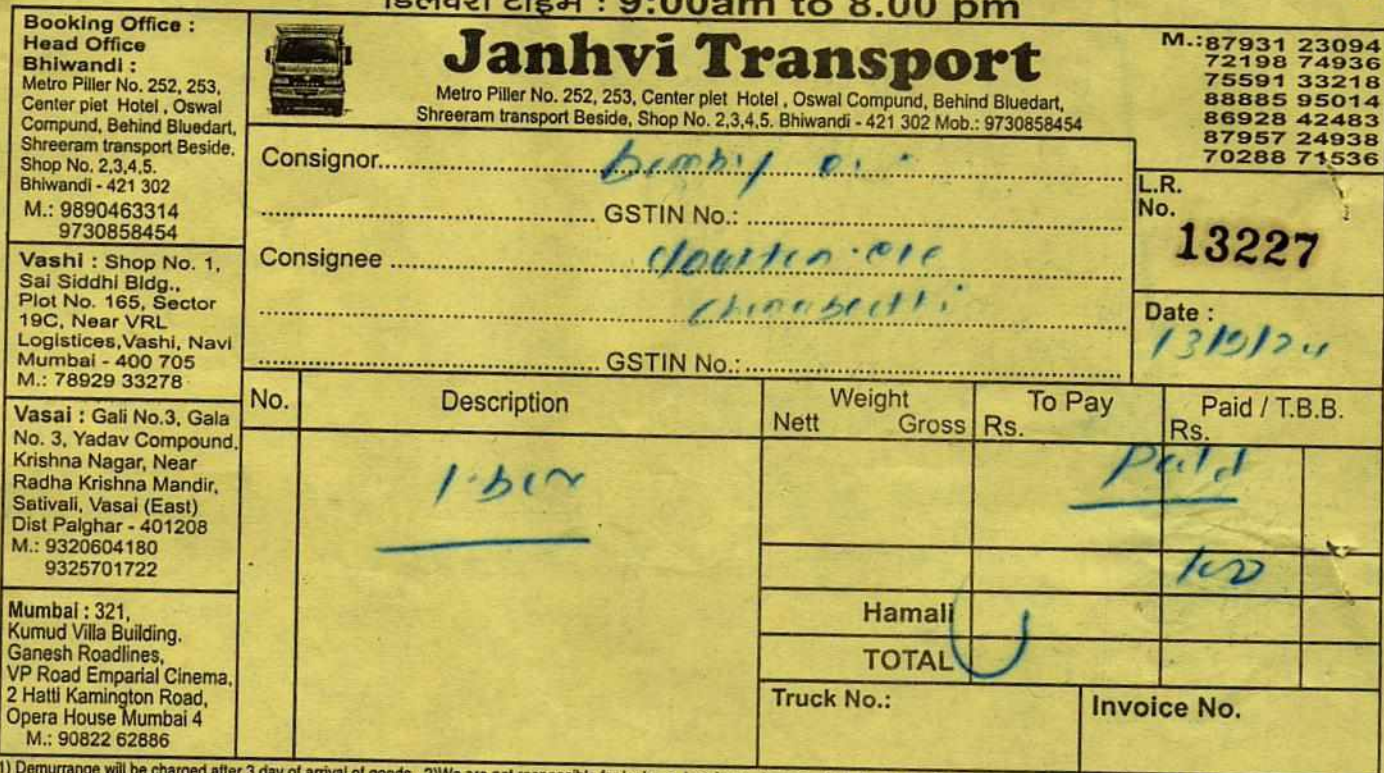 डिलिवरी टाईम : 9:00am to 8.00 pm
Booking Office :
Head Office
Bhiwandi :
Metro Piller No. 252, 253,
Center piet Hotel , Oswal
Compund, Behind Bluedart,
Shreeram transport Beside,
Shop No. 2,3,4,5.
Bhiwandi - 421 302
M.: 9890463314
9730858454
Vashi : Shop No. 1,
Sai Siddhi Bldg.,
Plot No. 165, Sector
19C, Near VRL
Logistices,Vashi, Navi
Mumbai - 400 705
M.: 78929 33278
Vasai : Gali No.3, Gala
No. 3, Yadav Compound,
Krishna Nagar, Near
Radha Krishna Mandir,
Sativali, Vasai (East)
Dist Palghar - 401208
M.: 9320604180
9325701722
Mumbai : 321,
Kumud Villa Building.
Ganesh Roadlines,
VP Road Emparial Cinema,
2 Hatti Kamington Road,
Opera House Mumbai 4
M.: 90822 62886
Janhvi Transport
Metro Piller No. 252, 253, Center plet Hotel , Oswal Compund, Behind Bluedart,
Shreeram transport Beside, Shop No. 2,3,4,5. Bhiwandi - 421 302 Mob.: 9730858454
M.:87931 23094
72198 74936
75591 33218
88885 95014
86928 42483
87957 24938
70288 71536
Consignor
GSTIN No.:
Consignee
GSTIN No.:
L.R.
No.
13227
Date :
13/9/24
No. Description Weight To Pay Paid / T.B.B.
Nett Gross Rs. Rs.
Paid
Hamali
TOTAL
Truck No.: Invoice No.
1) Demurrange will be charged after 3 day of arrival of goods.